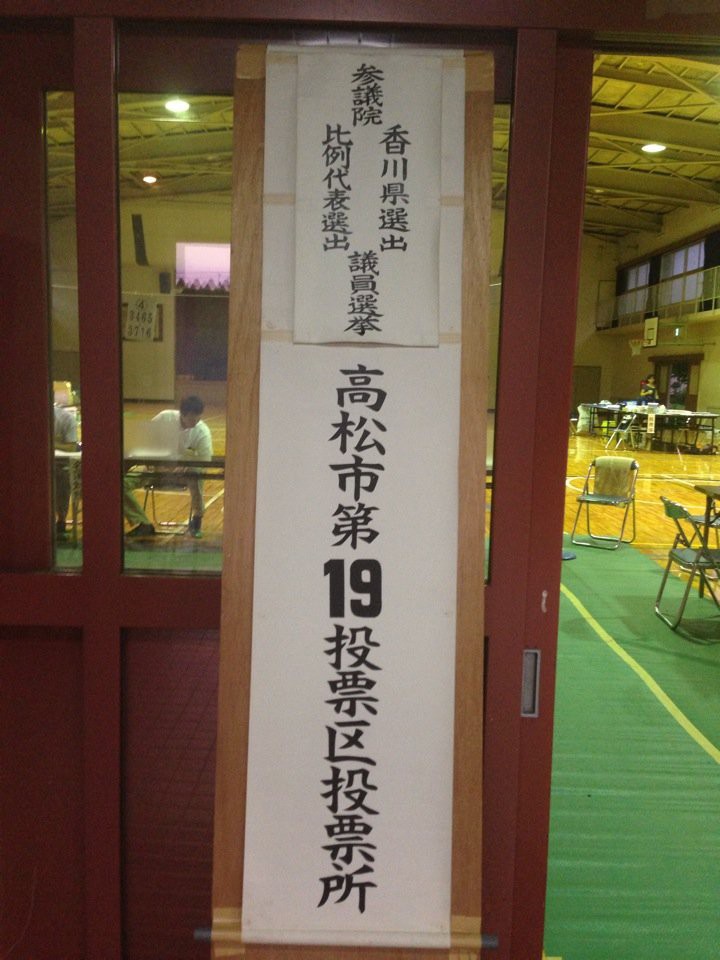 参議院
香川県選出
比例代表選出
議員選挙
高松市第19投票区投票所
(4)
3465
3716